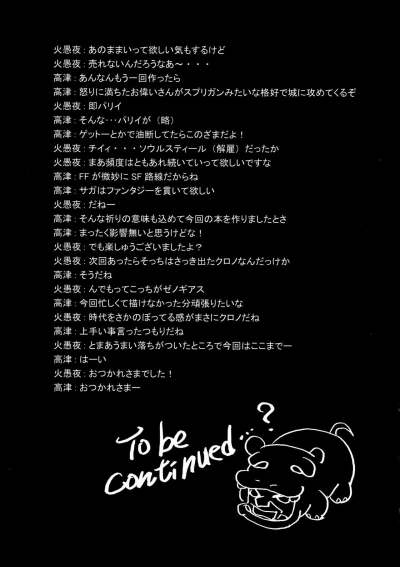 火愚夜：あのままいって欲しい気もするけど
火愚夜：売れないんだろうなあ～・・・
高津：あんなんもう一回作ったら
高津：怒りに満ちたお偉いさんがスプリガンみたいな格好で城に攻めてくるぞ
火愚夜：即バリイ
高津：そんな･･･バリイが（略）
高津：ゲットーとかで油断してたらこのざまだよ！
火愚夜：チイィ・・・ソウルスティール（解雇）だったか
火愚夜：まあ頻度はともあれ続いていって欲しいですな
高津：ＦＦが微妙に SF 路線だからね
高津：サガはファンタジーを貫いて欲しい
火愚夜：だねー
高津：そんな祈りの意味も込めて今回の本を作りましたとさ
高津：まったく影響無いと思うけどな！
火愚夜：でも楽しゅうございましたよ？
火愚夜：次回あったらそっちはさっき出たクロノなんだっけか
高津：そうだね
火愚夜：んでもってこっちがゼノギアス
高津：今回忙しくて描けなかった分頑張りたいな
火愚夜：時代をさかのぼってる感がまさにクロノだね
高津：上手い事言ったつもりだね
火愚夜：とまあうまい落ちがついたところで今回はここまでー
高津：はーい
火愚夜：おつかれさまでした！
高津：おつかれさまー
To be
continued...?